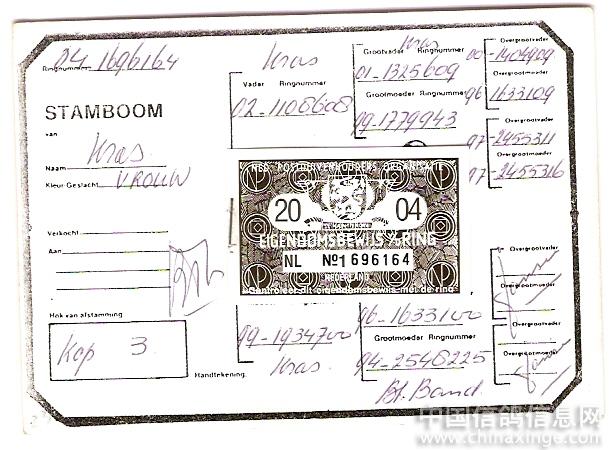 04-1696164
Ringnummer
STAMBOOM
van
Kras
Naam
VROUW
Kleur Geslacht
Verkocht
Aan
Hok van afstamming
Kop 3
Handtekening
Kras
Vader Ringnummer
02-1108608
Kras
Grootvader Ringnummer
01-1325609
Grootmoeder Ringnummer
99-1779943
Overgrootvader
00-1404909
Overgrootmoeder
96 1633109
Overgrootvader
97-2455311
Overgrootmoeder
97-2455316
20 04
EIGENDOMSBEWIJS V. RING
NL No 1696164
NEDERLAND
Controleer dit eigendomsbewijs met de ring
99-1934700
Kras
96-1633100
Grootmoeder Ringnummer
94-2546225
Bt. Band
Overgrootvader
Overgrootmoeder
Overgrootvader
Overgrootmoeder
中国信鸽信息网
www.chinaxinge.com